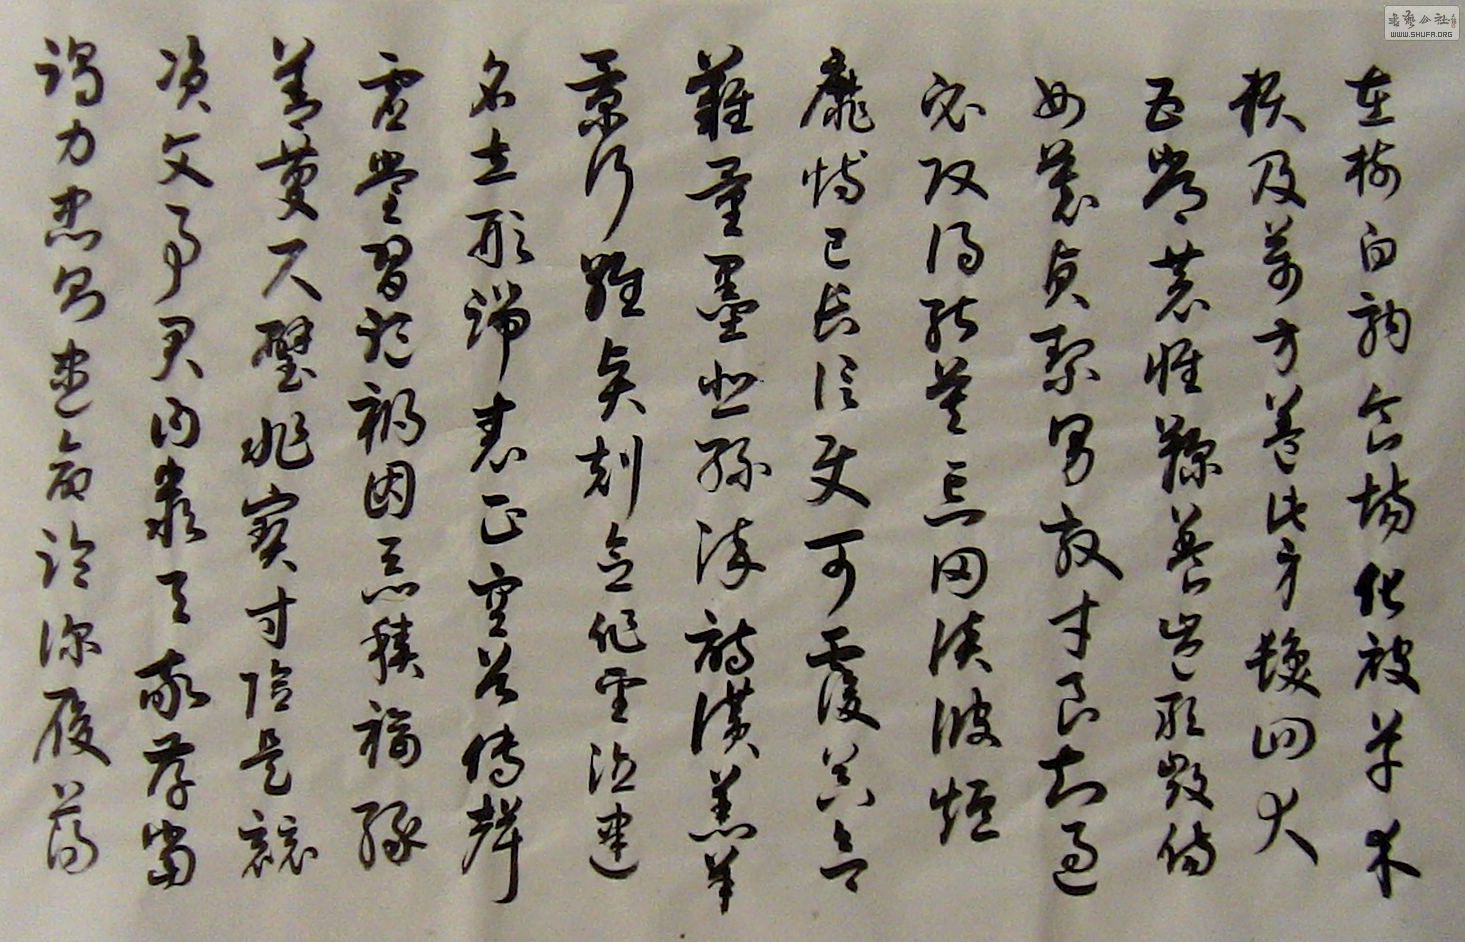 在樹白駒食場化被草木
賴及萬方蓋此身髮四大
五常恭惟鞠養豈敢毀傷
女慕貞絜男效才良知過
必改得能莫忘罔談彼短
靡恃己長信使可覆器欲
難量墨悲絲染詩讚羔羊
景行維賢剋念作聖德建
名立形端表正空谷傳聲
虛堂習聽禍因惡積福緣
善慶尺璧非寶寸陰是競
資父事君曰嚴與敬孝當
竭力忠則盡命臨深履薄
書藝公社
WWW.SHUFA.ORG